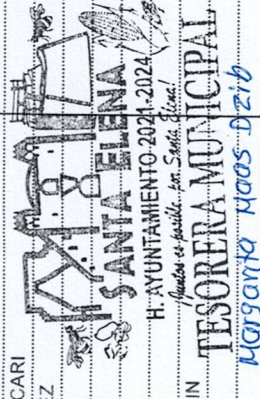 CARI
EZ
IN
SANTA ELENA
H. AYUNTAMIENTO 2021-2024
¡Juntos es posible por Santa Elena!
TESORERA MUNICIPAL
Margarita Maas Dzib